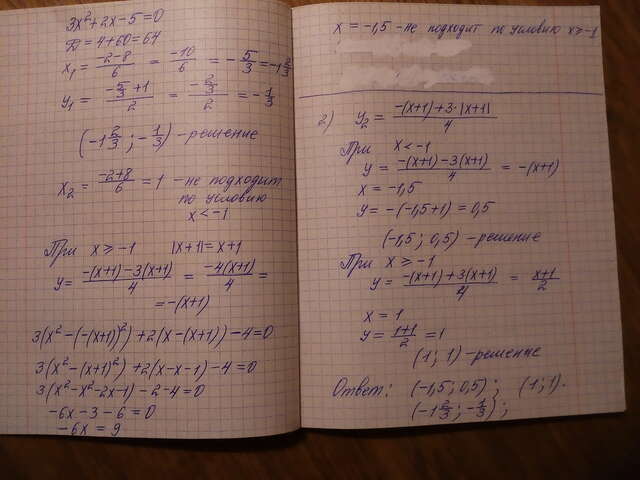 3x² + 2x - 5 = 0
D = 4 + 60 = 64
x₁ = (-2-8)/6 = -10/6 = -5/3 = -1 2/3
y₁ = (-5/3 + 1)/2 = (-2/3)/2 = -1/3
(-1 2/3; -1/3) - решение
x₂ = (-2+8)/6 = 1 - не подходит
по условию
x < -1
При x ≥ -1 |x+1| = x+1
y = (-(x+1) - 3(x+1))/4 = -4(x+1)/4 =
= -(x+1)
3(x² - (-(x+1))²) + 2(x - (x+1)) - 4 = 0
3(x² - (x+1)²) + 2(x - x - 1) - 4 = 0
3(x² - x² - 2x - 1) - 2 - 4 = 0
-6x - 3 - 6 = 0
-6x = 9
x = -1,5 - не подходит по условию x ≥ -1
2) y₂ = (-(x+1) + 3·|x+1|)/4
При x < -1
y = (-(x+1) - 3(x+1))/4 = -(x+1)
x = -1,5
y = -(-1,5+1) = 0,5
(-1,5; 0,5) - решение
При x ≥ -1
y = (-(x+1) + 3(x+1))/4 = (x+1)/2
x = 1
y = (1+1)/2 = 1
(1; 1) - решение
Ответ: (-1,5; 0,5); (1; 1).
(-1 2/3; -1/3);